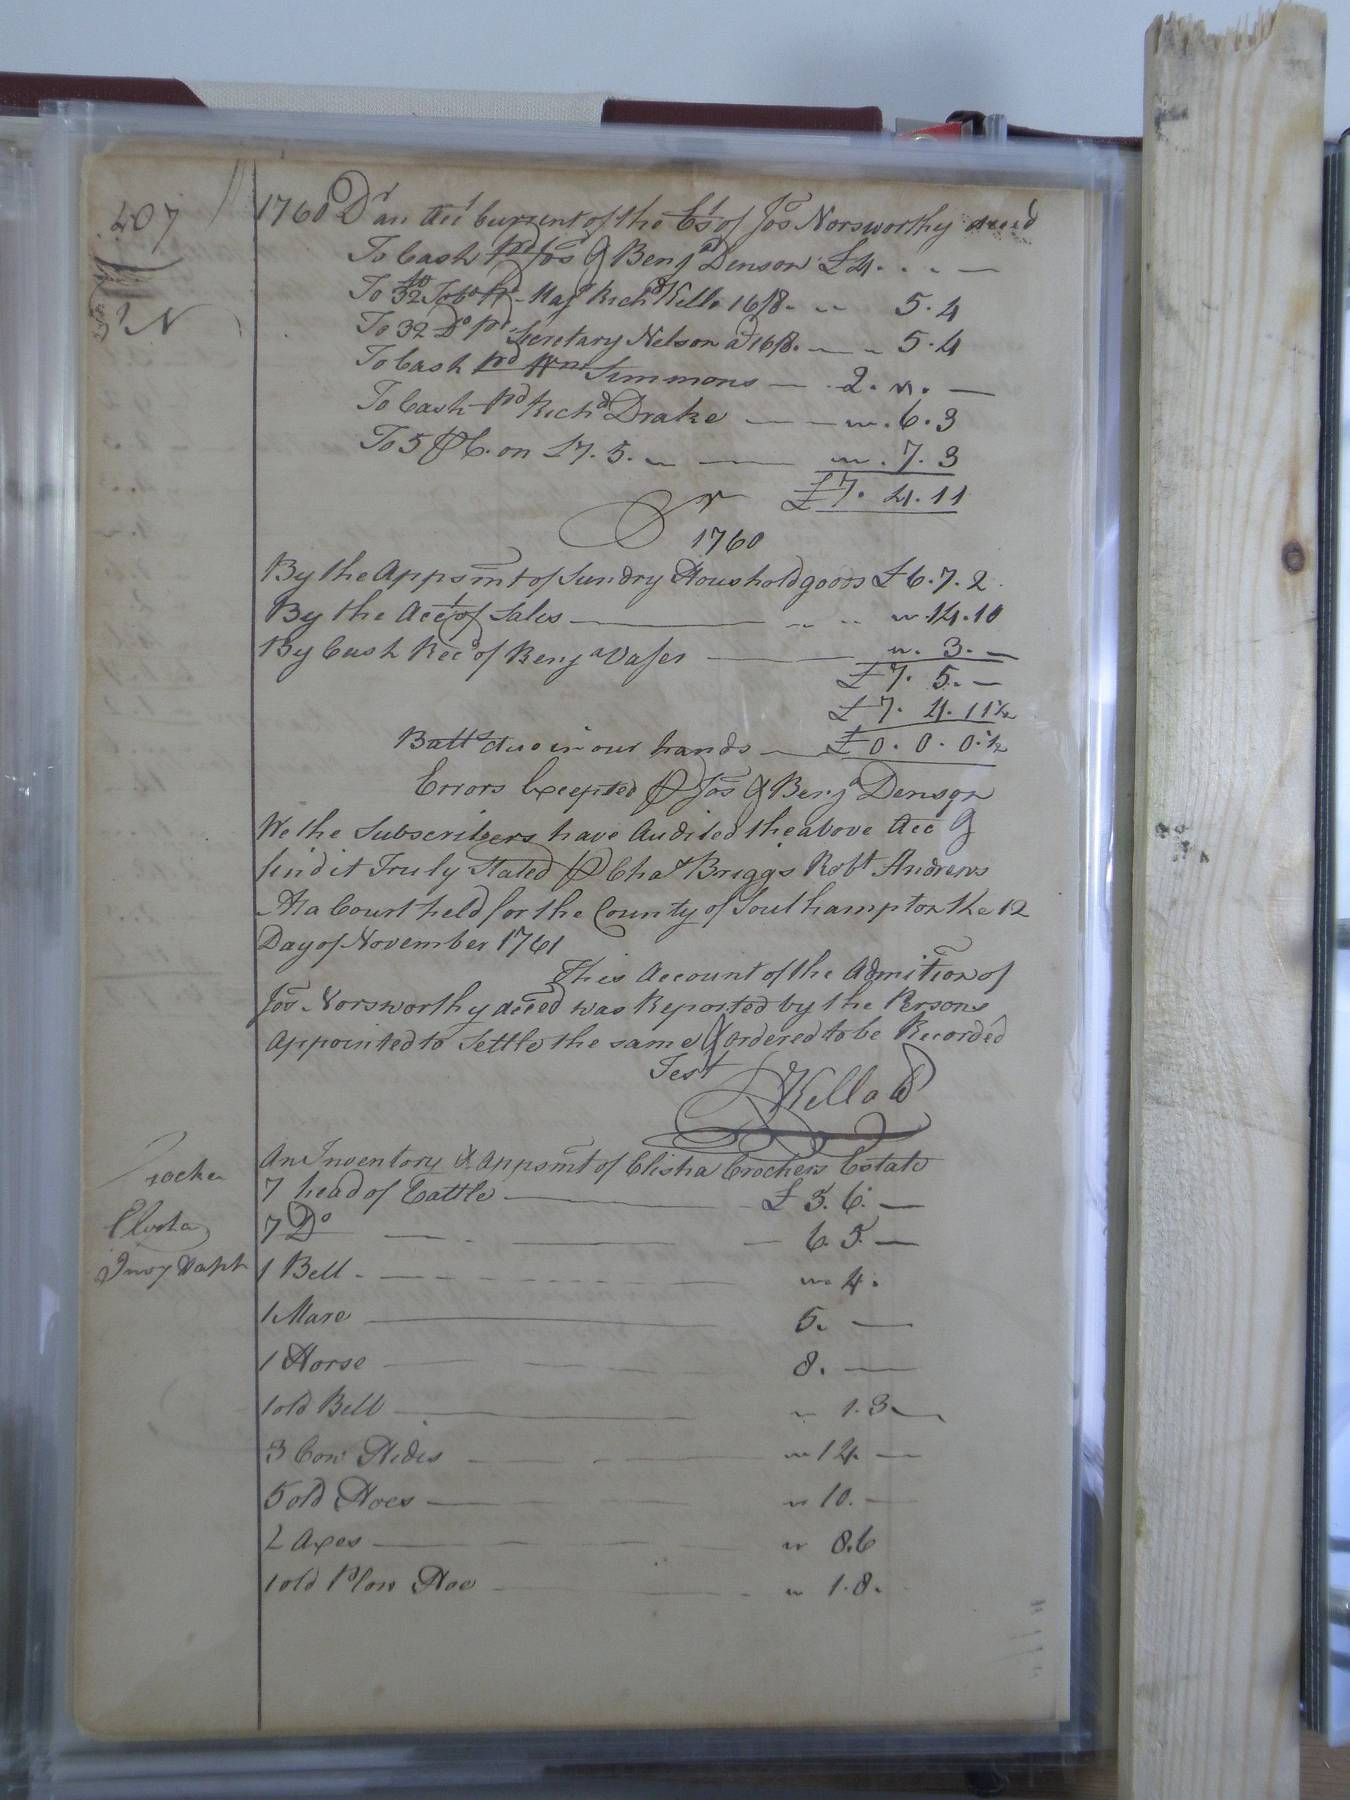 407
N
1760 Dr an Acct Current of the Est of Jos Norsworthy deced
To Cash pd Jos & Benja Denson £4. . . —
To 32 Tobo pd Maj Richd Kello 16/8. 5.4
To 32 Do pd Secretary Nelson a 16/8. — 5.4
To Cash pd Wm Simmons — 2. „. —
To Cash pd Richd Drake — — „. 6.3
To 5 P C. on £7. 5. „ — „. 7. 3
£7. 4. 11
Cr
1760
By the Appsmt of Sundry Houshold goods £6.7.2
By the Acct of Sales — „.14.10
By Cash Recd of Benja Vaser — „. 3. —
£7. 5. —
£7. 4. 11½
Balla due in our hands — £0. 0. 0.½
Errors Excepted P Jos & Benja Denson
We the Subscribers have Audited the above Acc &
find it Truly Stated P Chas Briggs Robt Andrews
At a Court held for the County of Southampton the 12
Day of November 1761
This Account of the Admition of
Jos Norsworthy deced was Reported by the Persons
Appointed to Settle the same & ordered to be Recorded
Test
RKello Cl
Crocker
Elisha
Invy & apt
An Inventory & Appsmt of Elisha Crockers Estate
7 head of Cattle — £ 5. 6. —
7 Do — — — 6. 5. —
1 Bell - — — — „. 4.
1 Mare — 5. —
1 Horse — — — 8. —
1 old Bell — „ 1.3 —
3 Cow Hides — — „ 14. —
5 old Hoes — — „ 10. —
2 Axes — — „ 8.6
1 old Plow Hoe — „ 1.8.